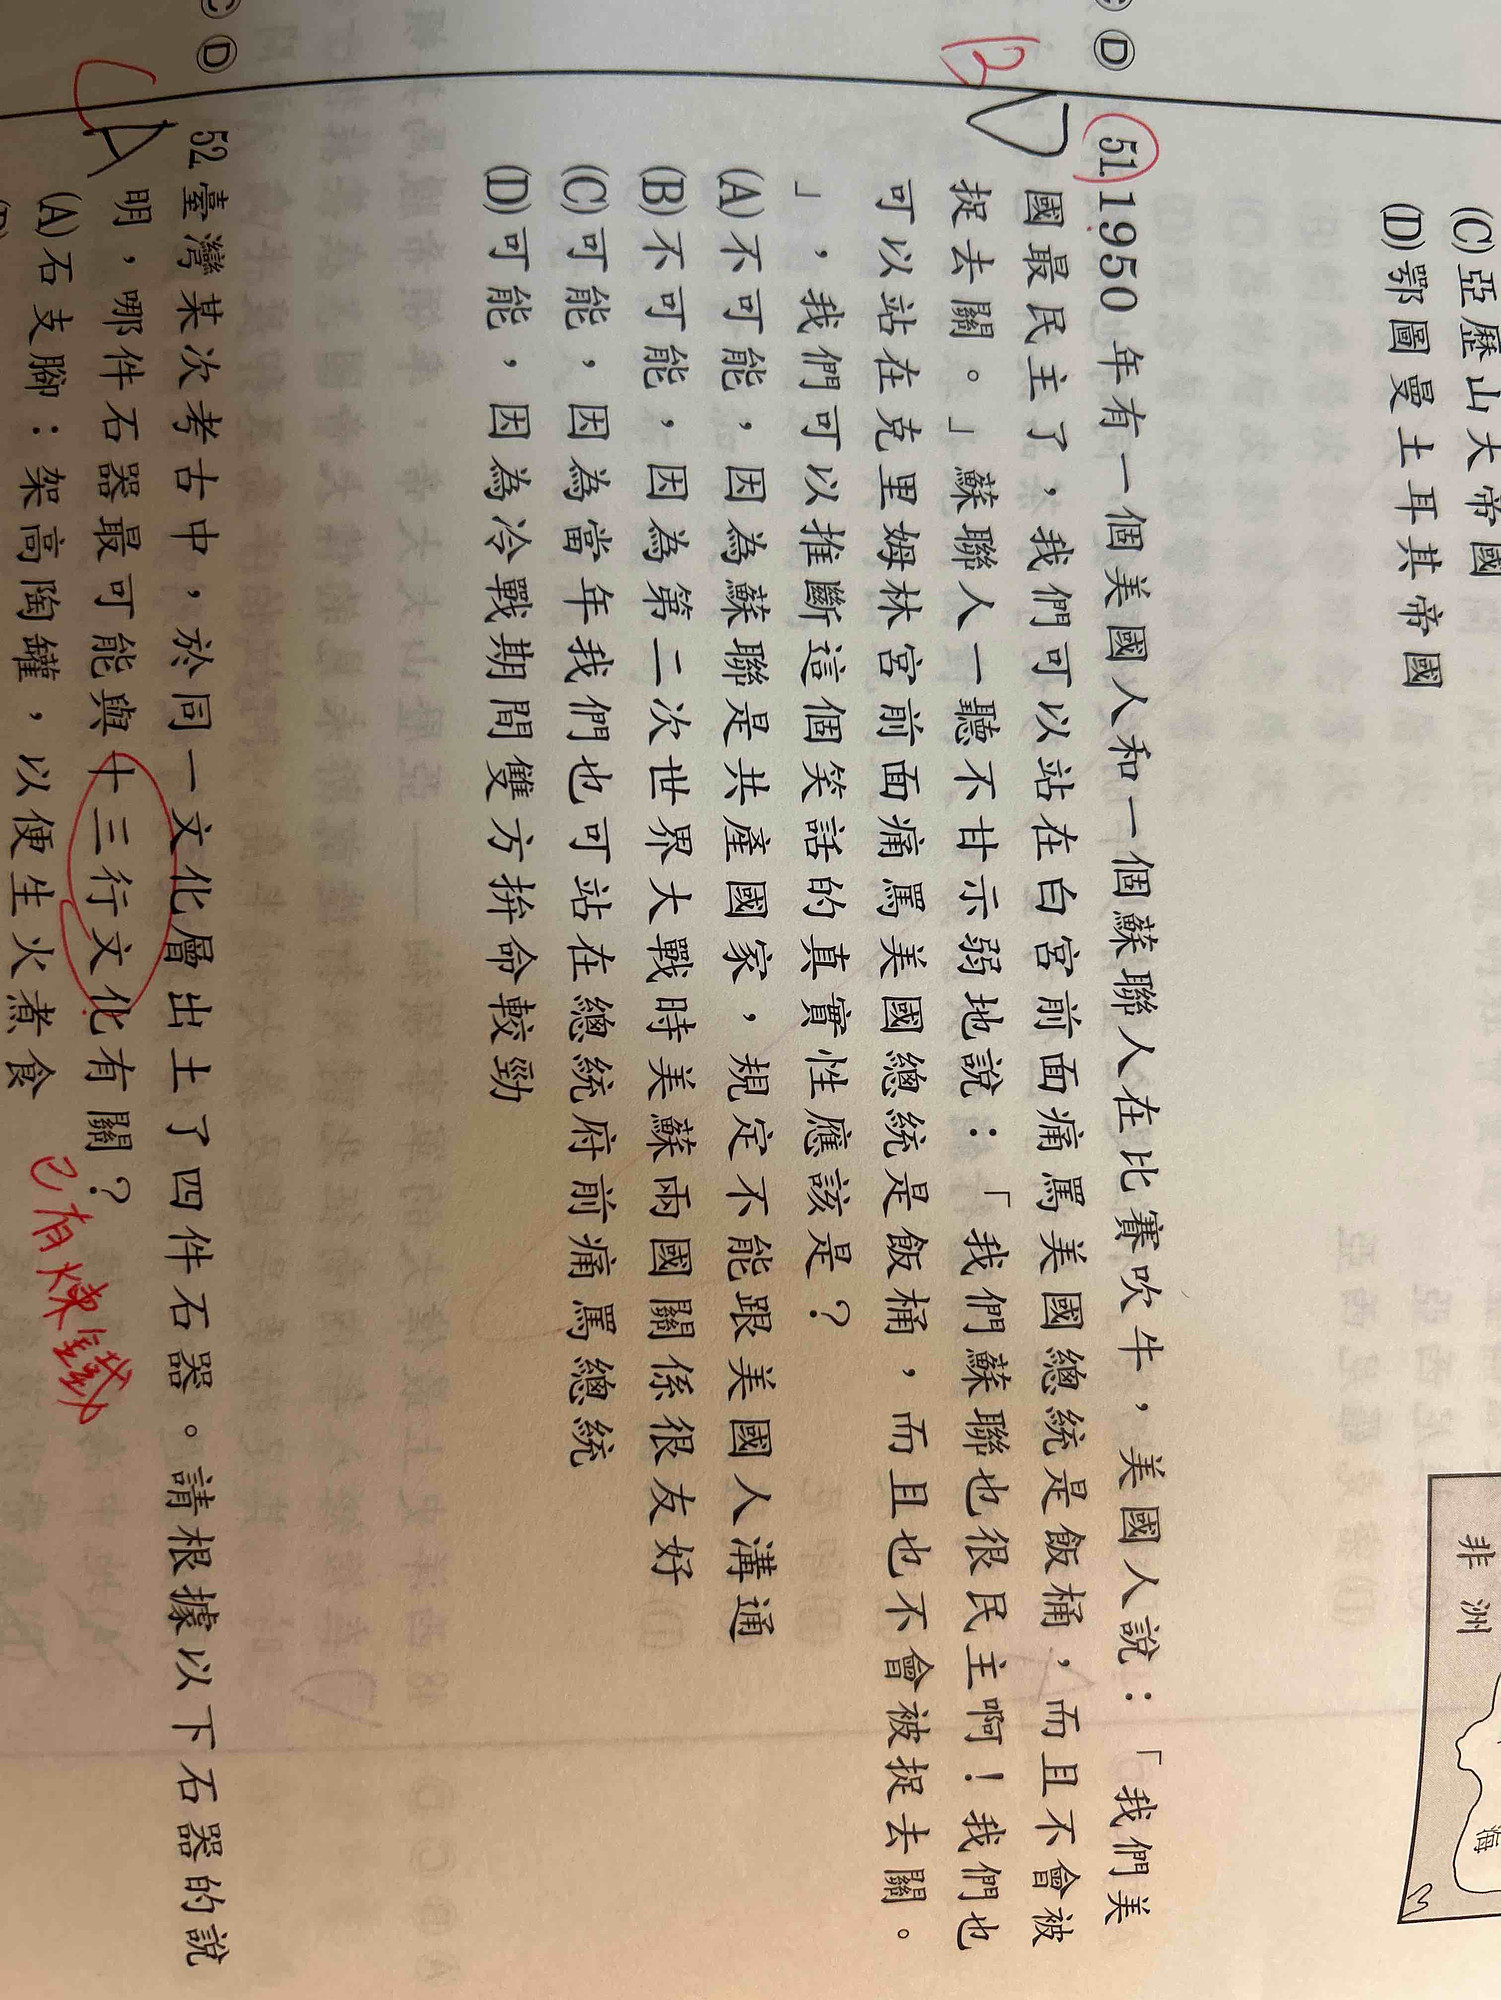 (C)亞歷山大帝國
(D)鄂圖曼土耳其帝國
非洲
海
Ⓓ
B
D
51. 1950 年有一個美國人和一個蘇聯人在比賽吹牛，美國人說：「我們美
國最民主了，我們可以站在白宮前面痛罵美國總統是飯桶，而且不會被
捉去關。」蘇聯人一聽不甘示弱地說：「我們蘇聯也很民主啊！我們也
可以站在克里姆林宮前面痛罵美國總統是飯桶，而且也不會被捉去關。
」，我們可以推斷這個笑話的真實性應該是？
(A)不可能，因為蘇聯是共產國家，規定不能跟美國人溝通
(B)不可能，因為第二次世界大戰時美蘇兩國關係很友好
(C)可能，因為當年我們也可站在總統府前痛罵總統
(D)可能，因為冷戰期間雙方拚命較勁
Ⓓ
C
A
52. 臺灣某次考古中，於同一文化層出土了四件石器。請根據以下石器的說
明，哪件石器最可能與十三行文化有關？
已有煉鐵
(A)石支腳：架高陶罐，以便生火煮食